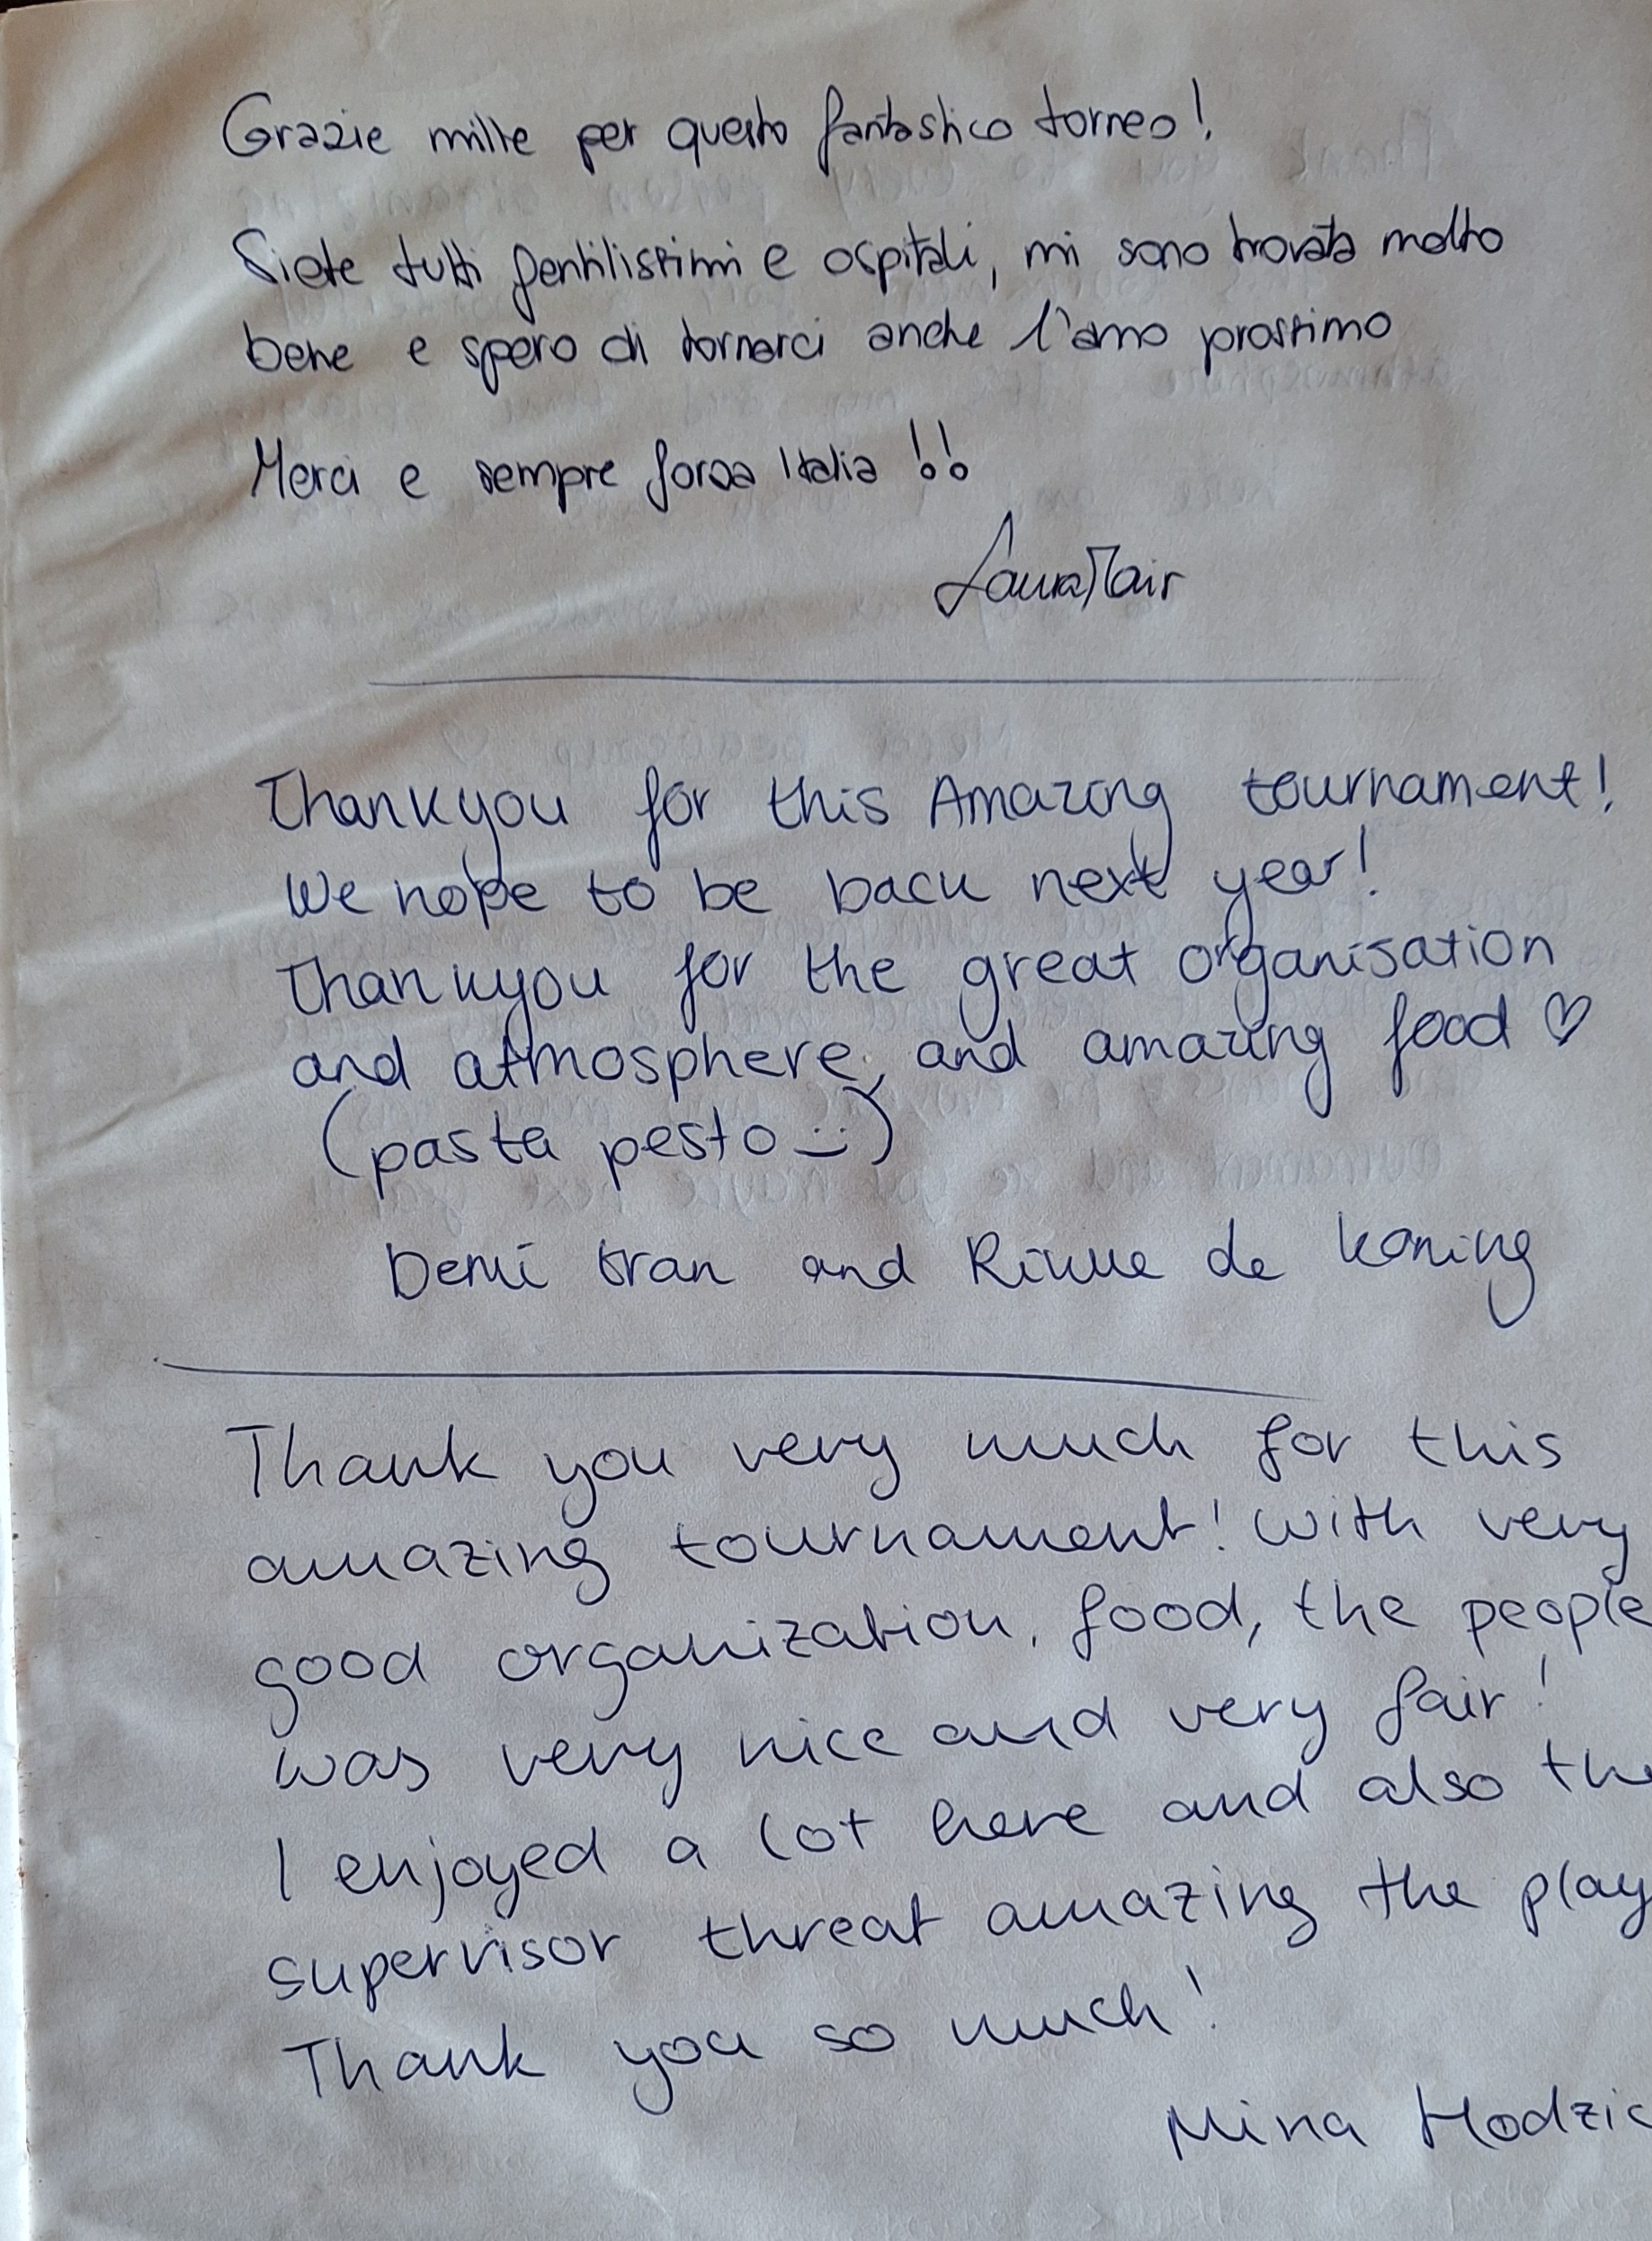 Grazie mille per questo fantastico torneo!
Siete tutti gentilissimi e ospitali, mi sono trovata molto
bene e spero di tornarci anche l'anno prossimo
Merci e sempre forza Italia !!
Laura Mair
Thankyou for this Amazing tournament!
We hope to be back next year!
Thankyou for the great organisation
and atmosphere, and amazing food ♡
(pasta pesto :))
Demi tran and Rikke de koning
Thank you very much for this
amazing tournament! With very
good organization, food, the people
was very nice and very fair!
I enjoyed a lot here and also the
supervisor threat amazing the play
Thank you so much!
Mina Hodzic